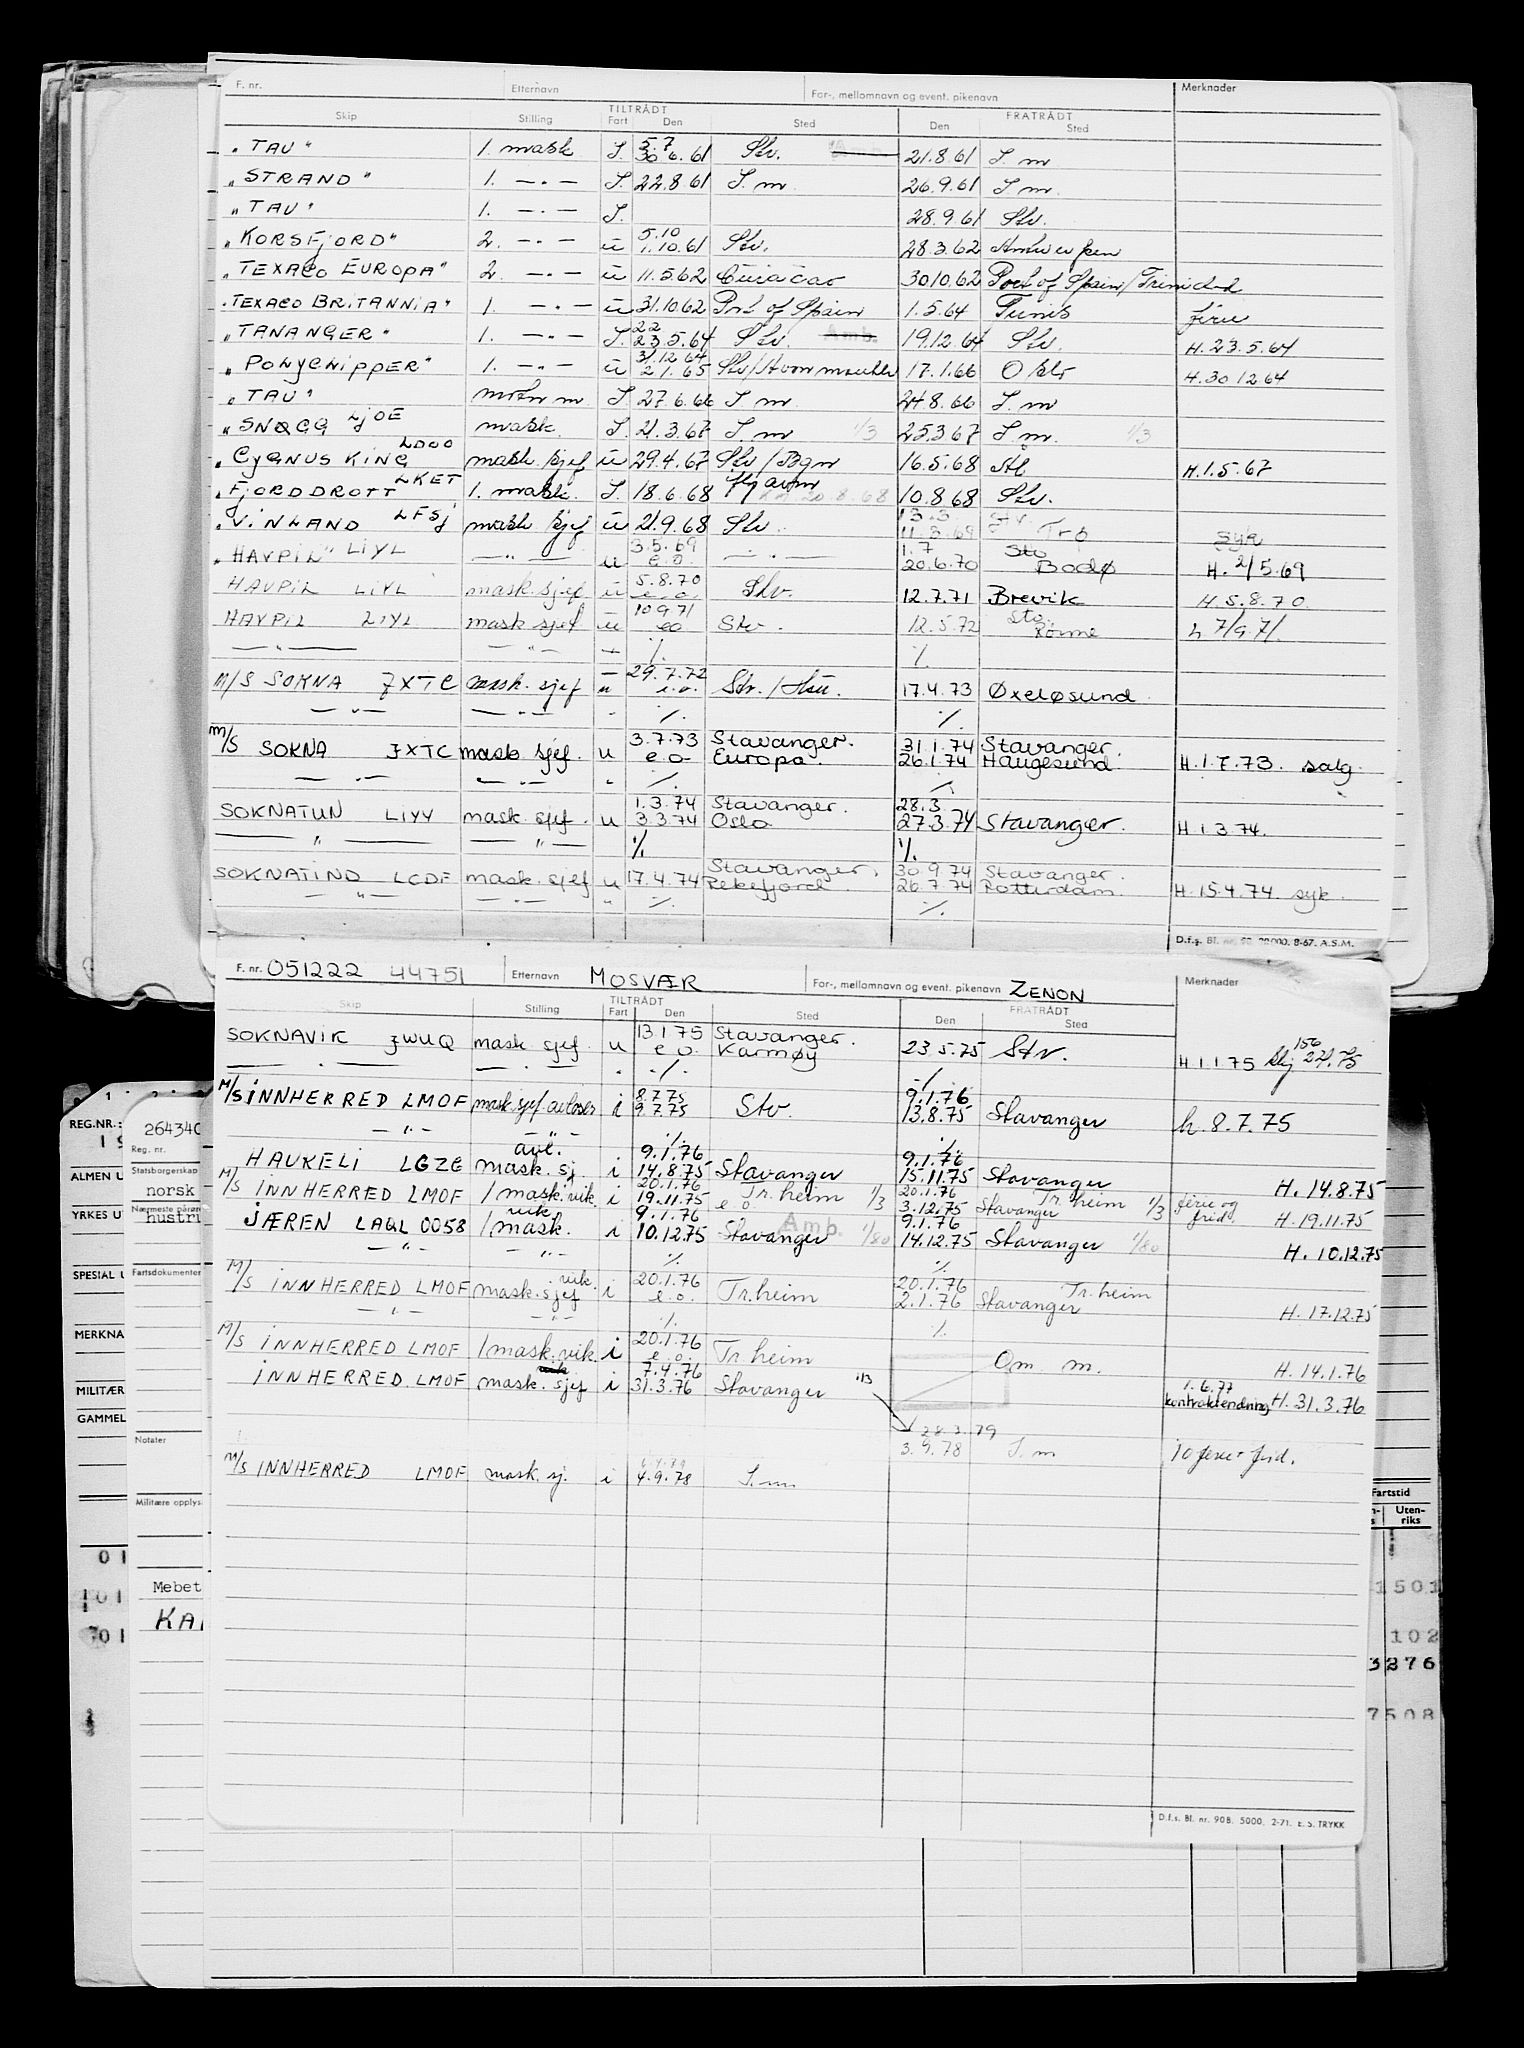 F. nr. Etternavn For-, mellomnavn og event. pikenavn Merknader
Skip Stilling TILTRÅDT Fart Den Sted FRATRÅDT Den Sted
"TAU" 1. mask S. 5.7 30.6.61 Stv. Amb. 21.8.61 S. m
"STRAND" 1. —.— S. 22.8.61 S. m. 26.9.61 S. m.
"TAU" 1. —.— S. 28.9.61 Stv.
"KORSFJORD" 2. —.— u 5.10 1.10.61 Stv. 28.3.62 Antwerpen
"TEXACO EUROPA" 2. —.— u 11.5.62 Curacao 30.10.62 Port of Spain/Trinidad
"TEXACO BRITANNIA" 1. —.— u 31.10.62 Port of Spain 1.5.64 Tunis ferie
"TANANGER" 1. —.— S. 22 23.5.64 Stv. Amb. 19.12.64 Stv. H.23.5.64
"POLYCHIPPER" 1. —.— u 31.12.64 2.1.65 Stv/Avonmouth 17.1.66 Oslo H.30 12 64
"TAU" S. 27.6.66 S m 24.8.66 S. m
"SNØGG LJOE mask. S. 21.3.67 S m 1/3 25.3.67 S. m. 1/3
"CYGNUS KING LDOO mask/sjef u 29.4.67 Stv/Bgn 16.5.68 H.1.5.67
"FJORDDROTT LKET 1. mask. S. 18.6.68 20.8.68 10.8.68 Stv.
"VINLAND LFSJ mask sjef u 21.9.68 Stv. 13.3 Stv. 11.3.69 Trø syk
"HAVPIL" LIYL —"— u 3.5.69 e.o. —.— 1.7 Stv 20.6.70 Bodø H. 2/5.69
HAVPIL LIYL mask. sjef u 5.8.70 e.o. Stv. 12.7.71 Brevik H.5.8.70
HAVPIL LIYL mask sjef u 10 9 71 eo Stv. 12.5.72 Stv. Rønne h 7/9.71.
—"— —"— — ./. ./.
M/S SOKNA JXTC mask. sjef u 29.7.72 e.o. Stv./Hsu. 17.4.73 Øxeløsund
—"— —"— " ./. ./.
M/S SOKNA JXTC mask sjef. u 3.7.73 e o Stavanger. Europa. 31.1.74 Stavanger. 26.1.74 Haugesund. H.1.7.73. salg.
—.— —.— " ./. ./.
SOKNATUN LIYY mask. sjef. u 1.3.74 Stavanger. 3.3.74 Oslo 28.3. 27.3.74 Stavanger. H.1.3.74.
—"— —"— ./. ./.
SOKNATIND LCDF mask. sjef u 17.4.74 Stavanger. Rekefjord. 30.9.74 Stavanger. 26.7.74 Rotterdam. H.15.4.74. syk.
—"— —.— " ./. ./.
D.f.s. Bl. nr. 8-67. A.S.M.
F. nr. 051222 44751 Etternavn MOSVÆR For-, mellomnavn og event. pikenavn ZENON Merknader
Skip Stilling TILTRÅDT Fart Den Sted FRATRÅDT Den Sted
SOKNAVIK JWUQ mask. sjef. u 13.1.75 e o. Stavanger. Karmøy 23.5.75 Stv. H.1.1.75
—.— —.— . ./. ./.
M/S INNHERRED LMOF mask.sjef.avløser i 8.7.75 9.7.75 Stv. 9.1.76 13.8.75 Stavanger h. 8.7.75
—"— —"— ./. ./.
HAUKELI LGZG avl. mask. sj. i 9.1.76 14.8.75 Stavanger 9.1.76 15.11.75 Stavanger H. 14.8.75
M/S INNHERRED LMOF 1 mask. vik. i 20.1.76 19.11.75 Tr.heim e o. 1/3 20.1.76 3.12.75 Tr heim Stavanger 1/3 ferie og frid. H. 19.11.75
JÆREN LAQL 0058 vik. 1/mask. i 9.1.76 10.12.75 Stavanger Amb. 1/80 9.1.76 14.12.75 Stavanger 1/80 H. 10.12.75
—"— —"— ./. ./.
M/S INNHERRED LMOF mask. sjef vik. i 20.1.76 e.o. Tr.heim 20.1.76 2.1.76 Tr.heim Stavanger H. 17.12.75
—"— —"— ./. ./.
M/S INNHERRED LMOF 1 mask. vik. i 20.1.76 e.o. Tr heim Om m. H. 14.1.76
INNHERRED LMOF mask. sjef i 7.4.76 31.3.76 Stavanger 1/3 1.6.77 kontraktendring H. 31.3.76
28.3.79
3.9.78 S. m
M/S INNHERRED LMOF mask. sj. i 4.9.78 S. m.
D.f.s. Bl. nr. 90B. 5000. 2-71. E.S. TRYKK
REG.NR.:
ALMEN U
YRKES U
SPESIAL U
MERKNA
MILITÆR
GAMMEL
Reg. nr.
Statsborgerskap
norsk
Nærmeste pårør
hustru
Fartsdokumenter
Notater
Militære opplys.
Mebet
KA
Fartstid
Uten-
riks
1501
102
3276
7508